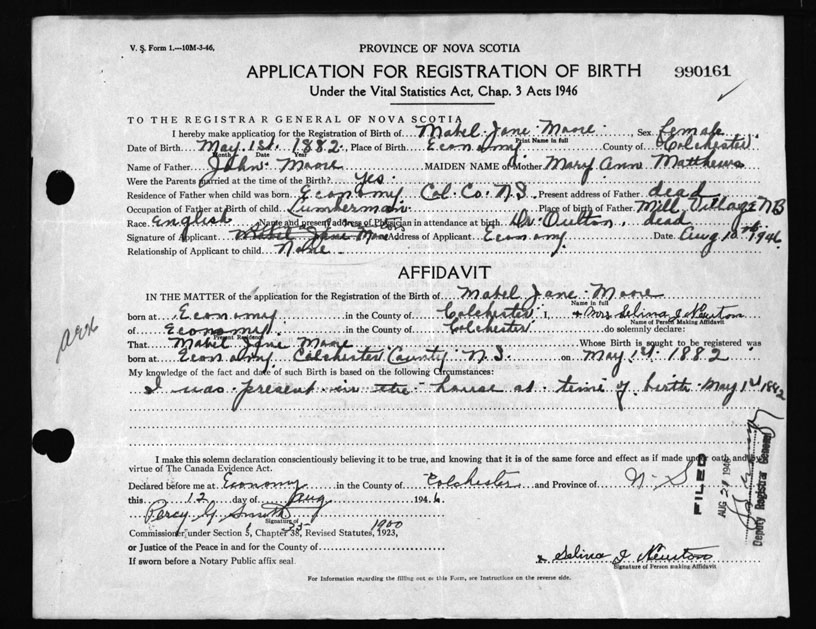 V. S. Form 1.—10M-3-46.
PROVINCE OF NOVA SCOTIA
APPLICATION FOR REGISTRATION OF BIRTH 990161
Under the Vital Statistics Act, Chap. 3 Acts 1946
TO THE REGISTRAR GENERAL OF NOVA SCOTIA
I hereby make application for the Registration of Birth of Mabel Jane Moore Sex Female
Print Name in full
Date of Birth May 1st 1882 Place of Birth Economy County of Colchester
Month Date Year
Name of Father John Moore MAIDEN NAME of Mother Mary Ann Matthews
Were the Parents married at the time of the Birth? Yes
Residence of Father when child was born Economy Col. Co. N.S. Present address of Father dead
Occupation of Father at Birth of child Lumberman Place of Birth of Father Mill Village NB
Race English Name and present address of Physician in attendance at birth Dr. Oulton, dead
Signature of Applicant Mabel Jane Moore Address of Applicant Economy Date Aug 10th 1946
Relationship of Applicant to child None
AFFIDAVIT
IN THE MATTER of the application for the Registration of the Birth of Mabel Jane Moore
Name in full
born at Economy in the County of Colchester I, Mrs Selina J Newton
Name of Person Making Affidavit
of Economy in the County of Colchester do solemnly declare:
Present Residence
That Mabel Jane Moore Whose Birth is sought to be registered was
born at Economy Colchester County N.S. on May 1st 1882
My knowledge of the fact and date of such Birth is based on the following Circumstances:
I was present in the house at time of birth May 1st 1882
I make this solemn declaration conscientiously believing it to be true, and knowing that it is of the same force and effect as if made under oath and by
virtue of The Canada Evidence Act.
Declared before me at Economy in the County of Colchester and Province of N. S
this 12 day of Aug 1946
Percy G. Smith
Signature of
Commissioner under Section 5, Chapter 38, Revised Statutes, 1923, 1900
or Justice of the Peace in and for the County of
If sworn before a Notary Public affix seal
x Selina J Newton
Signature of Person making Affidavit
For Information regarding the filling out of this Form, see Instructions on the reverse side.
FILED
AUG 21 1946
Deputy Registrar General